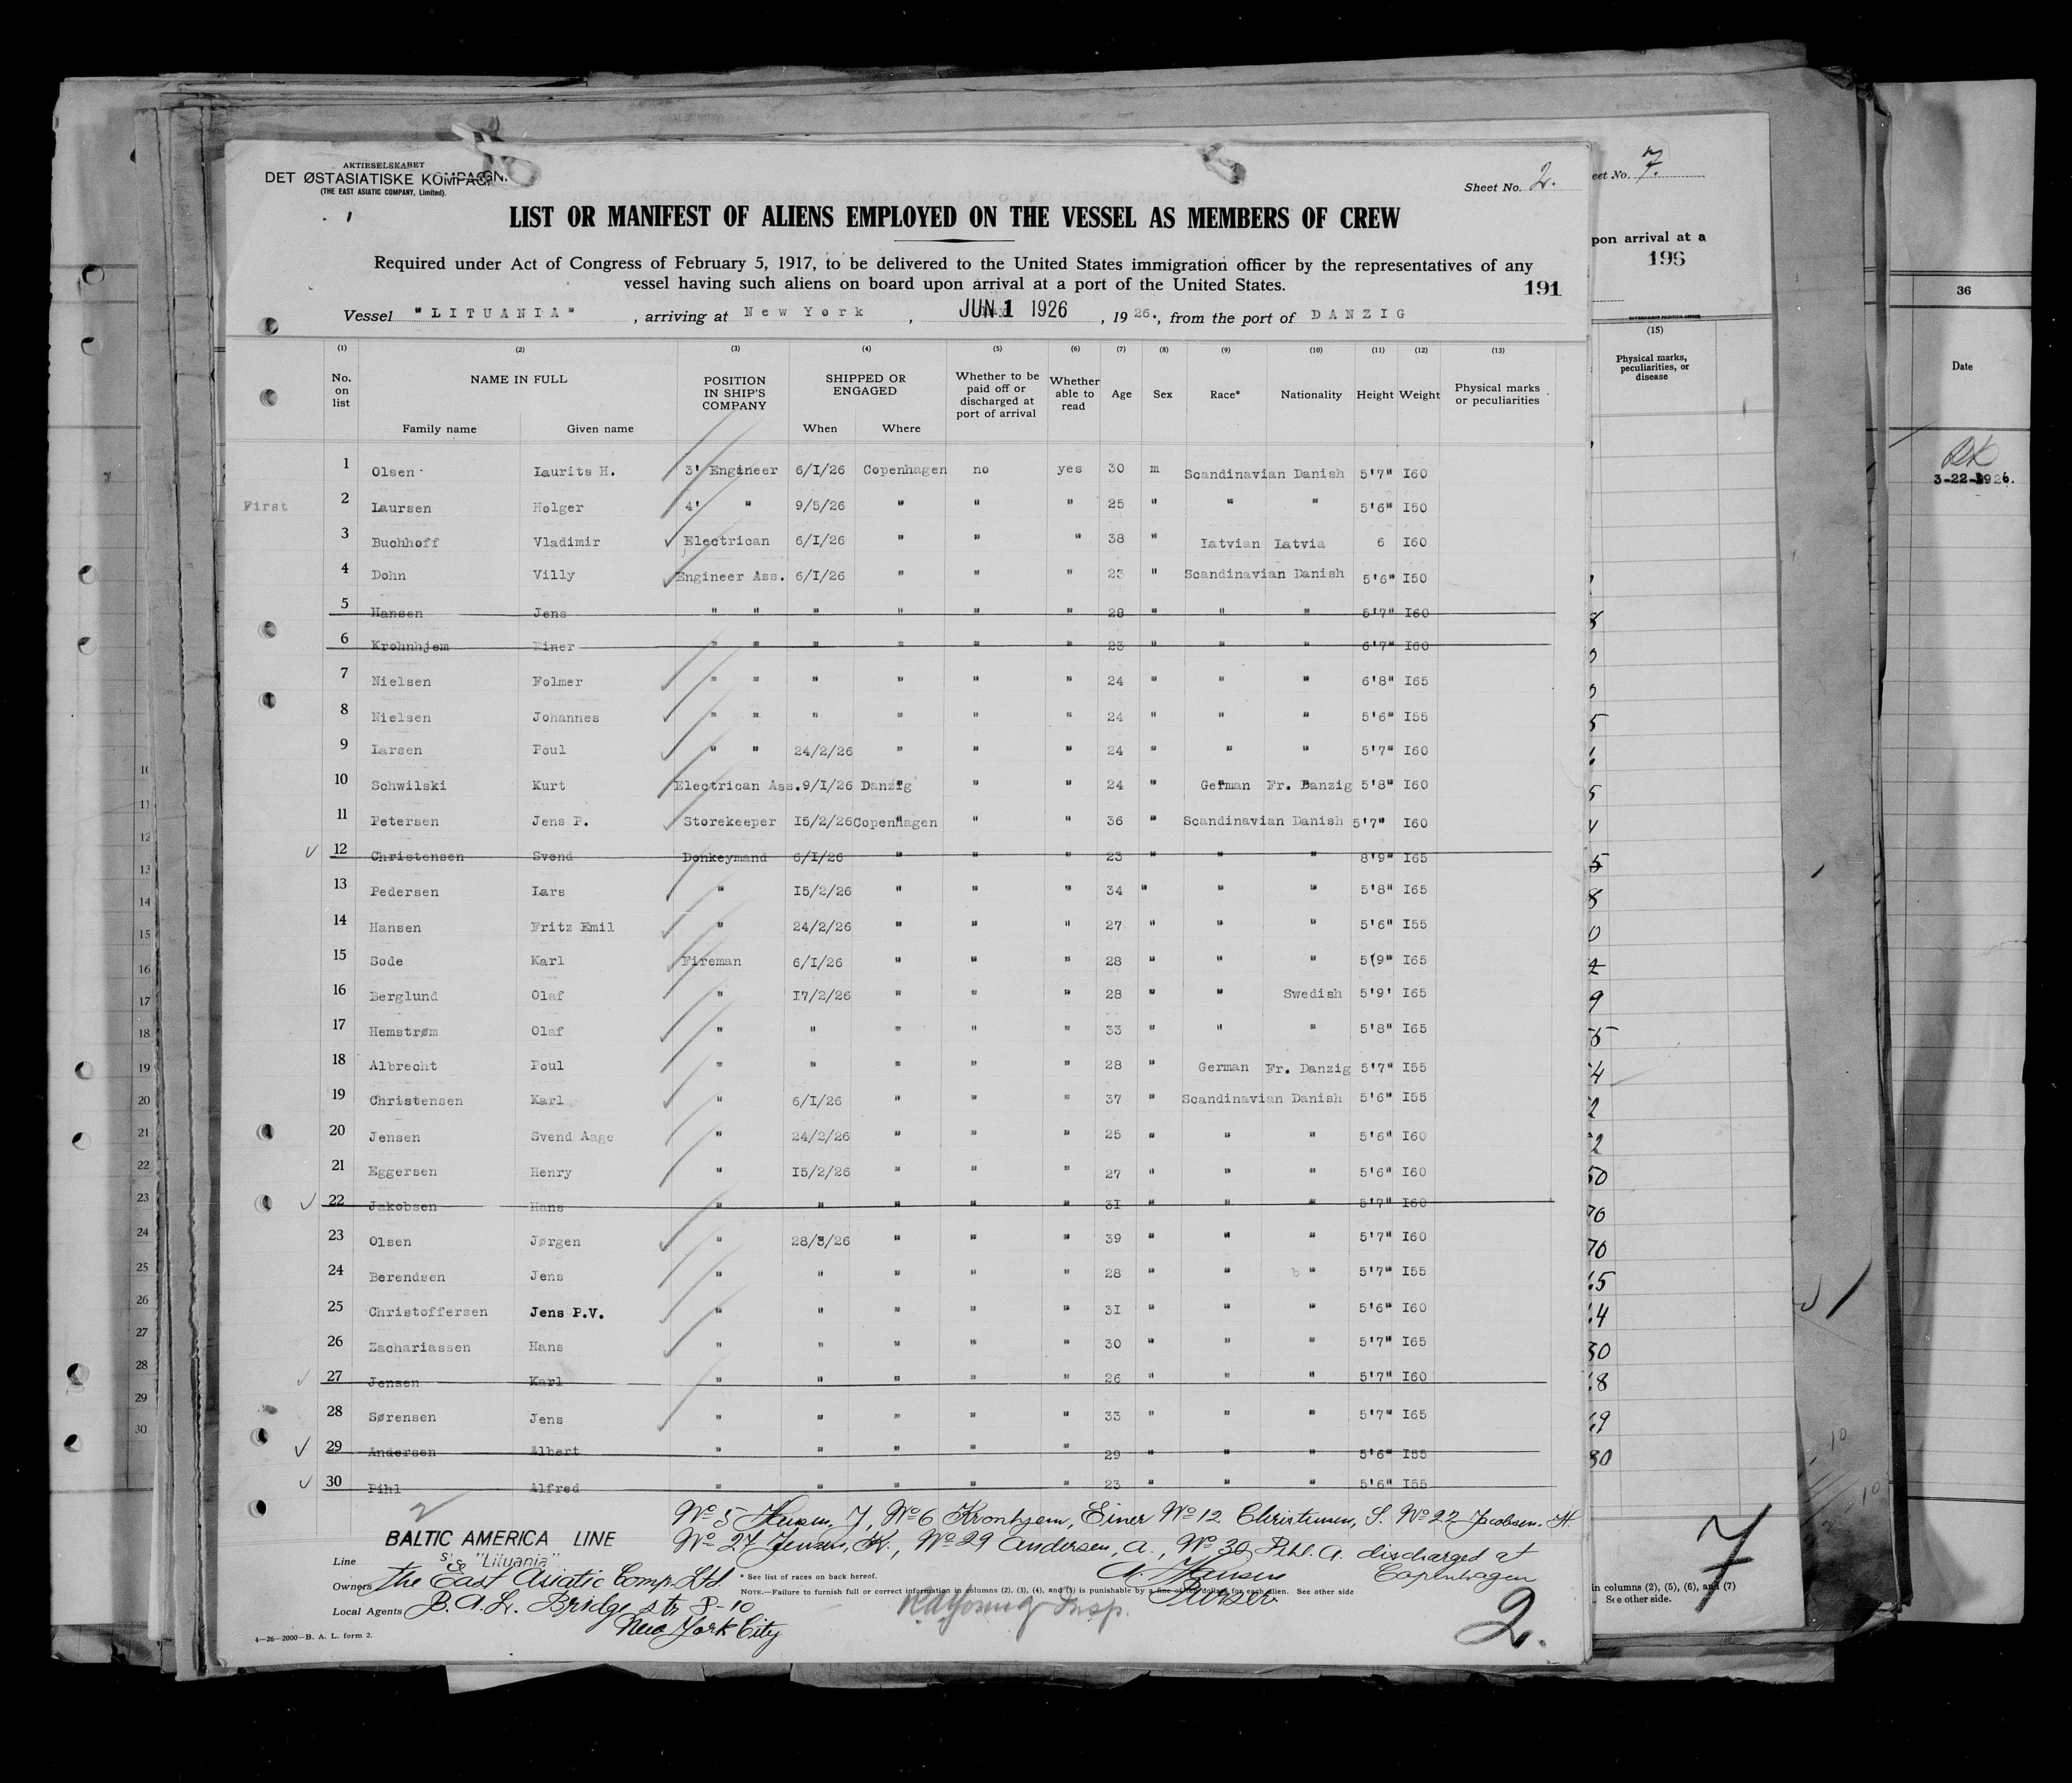 AKTIESELSKABET
DET ØSTASIATISKE KOMPAGN.
(THE EAST ASIATIC COMPANY, Limited).
Sheet No. 2.
LIST OR MANIFEST OF ALIENS EMPLOYED ON THE VESSEL AS MEMBERS OF CREW
Required under Act of Congress of February 5, 1917, to be delivered to the United States immigration officer by the representatives of any
vessel having such aliens on board upon arrival at a port of the United States.
191
Vessel "LITUANIA" , arriving at New York , JUN 1 1926 , 1926., from the port of DANZIG
(1) (2) (3) (4) (5) (6) (7) (8) (9) (10) (11) (12) (13)
No. on list NAME IN FULL Family name Given name POSITION IN SHIP'S COMPANY SHIPPED OR ENGAGED When Where Whether to be paid off or discharged at port of arrival Whether able to read Age Sex Race* Nationality Height Weight Physical marks or peculiarities
1 Olsen Laurits H. 3' Engineer 6/I/26 Copenhagen no yes 30 m Scandinavian Danish 5'7" I60
First 2 Laursen Holger 4' " 9/5/26 " " " 25 " " " 5'6" I50
3 Buchhoff Vladimir Electrican 6/I/26 " " " 38 " Latvian Latvia 6 I60
4 Dohn Villy Engineer Ass. 6/I/26 " " " 23 " Scandinavian Danish 5'6" I50
5 Hansen Jens " " " " " " 28 " " " 5'7" I60
6 Krohnhjem Einer " " " " " " 23 " " " 6'7" I60
7 Nielsen Folmer " " " " " " 24 " " " 6'8" I65
8 Nielsen Johannes " " " " " " 24 " " " 5'6" I55
9 Larsen Poul " " 24/2/26 " " " 24 " " " 5'7" I60
10 Schwilski Kurt Electrican Ass. 9/I/26 Danzig " " 24 " German Fr. Danzig 5'8" I60
11 Petersen Jens P. Storekeeper I5/2/26 Copenhagen " " 36 " Scandinavian Danish 5'7" I60
12 Christensen Svend Donkeymand 6/I/26 " " " 23 " " " 8'9" I65
13 Pedersen Lars " I5/2/26 " " " 34 " " " 5'8" I65
14 Hansen Fritz Emil " 24/2/26 " " " 27 " " " 5'6" I55
15 Sode Karl Fireman 6/I/26 " " " 28 " " " 5(9" I65
16 Berglund Olaf " I7/2/26 " " " 28 " " Swedish 5'9' I65
17 Hemstrøm Olaf " " " " " 33 " " " 5'8" I65
18 Albrecht Poul " " " " " 28 " German Fr. Danzig 5'7" I55
19 Christensen Karl " 6/I/26 " " " 37 " Scandinavian Danish 5'6" I55
20 Jensen Svend Aage " 24/2/26 " " " 25 " " " 5'6" I60
21 Eggersen Henry " I5/2/26 " " " 27 " " " 5'6" I60
22 Jakobsen Hans " " " " " 3I " " " 5'7" I60
23 Olsen Jørgen " 28/3/26 " " " 39 " " " 5'7" I60
24 Berendsen Jens " " " " " 28 " " " 5'7" I55
25 Christoffersen Jens P.V. " " " " " 3I " " " 5'6" I60
26 Zachariassen Hans " " " " " 30 " " " 5'7" I65
27 Jensen Karl " " " " " 26 " " " 5'7" I60
28 Sørensen Jens " " " " " 33 " " " 5'7" I65
29 Andersen Albert " " " " " 29 " " " 5'6" I55
30 Pihl Alfred " " " " " 23 " " " 5'6" I55
No 5 Hansen, J, No 6 Kronhjem, Einer No 12 Christensen, S. No 22 Jacobsen. H.
No 27 Jensen, K., No 29 Andersen, A., No 30 Pihl. A. discharged at
Copenhagen
BALTIC AMERICA LINE
Line S/S "Lituania"
Owners The East Asiatic Comp. Ltd.
Local Agents B.A.L. Bridge str 8-10
New York City
* See list of races on back hereof.
NOTE.—Failure to furnish full or correct information in columns (2), (3), (4), and (5) is punishable by a fine of ten dollars for each alien. See other side
Hansen
Purser.
Insp.
4—26—2000—B. A. L. form 2.
2.
eet No. 7.
pon arrival at a
196
(15)
Physical marks, peculiarities, or disease
in columns (2), (5), (6), and (7)
See other side.
7
36
Date
RK
3-22-1926.